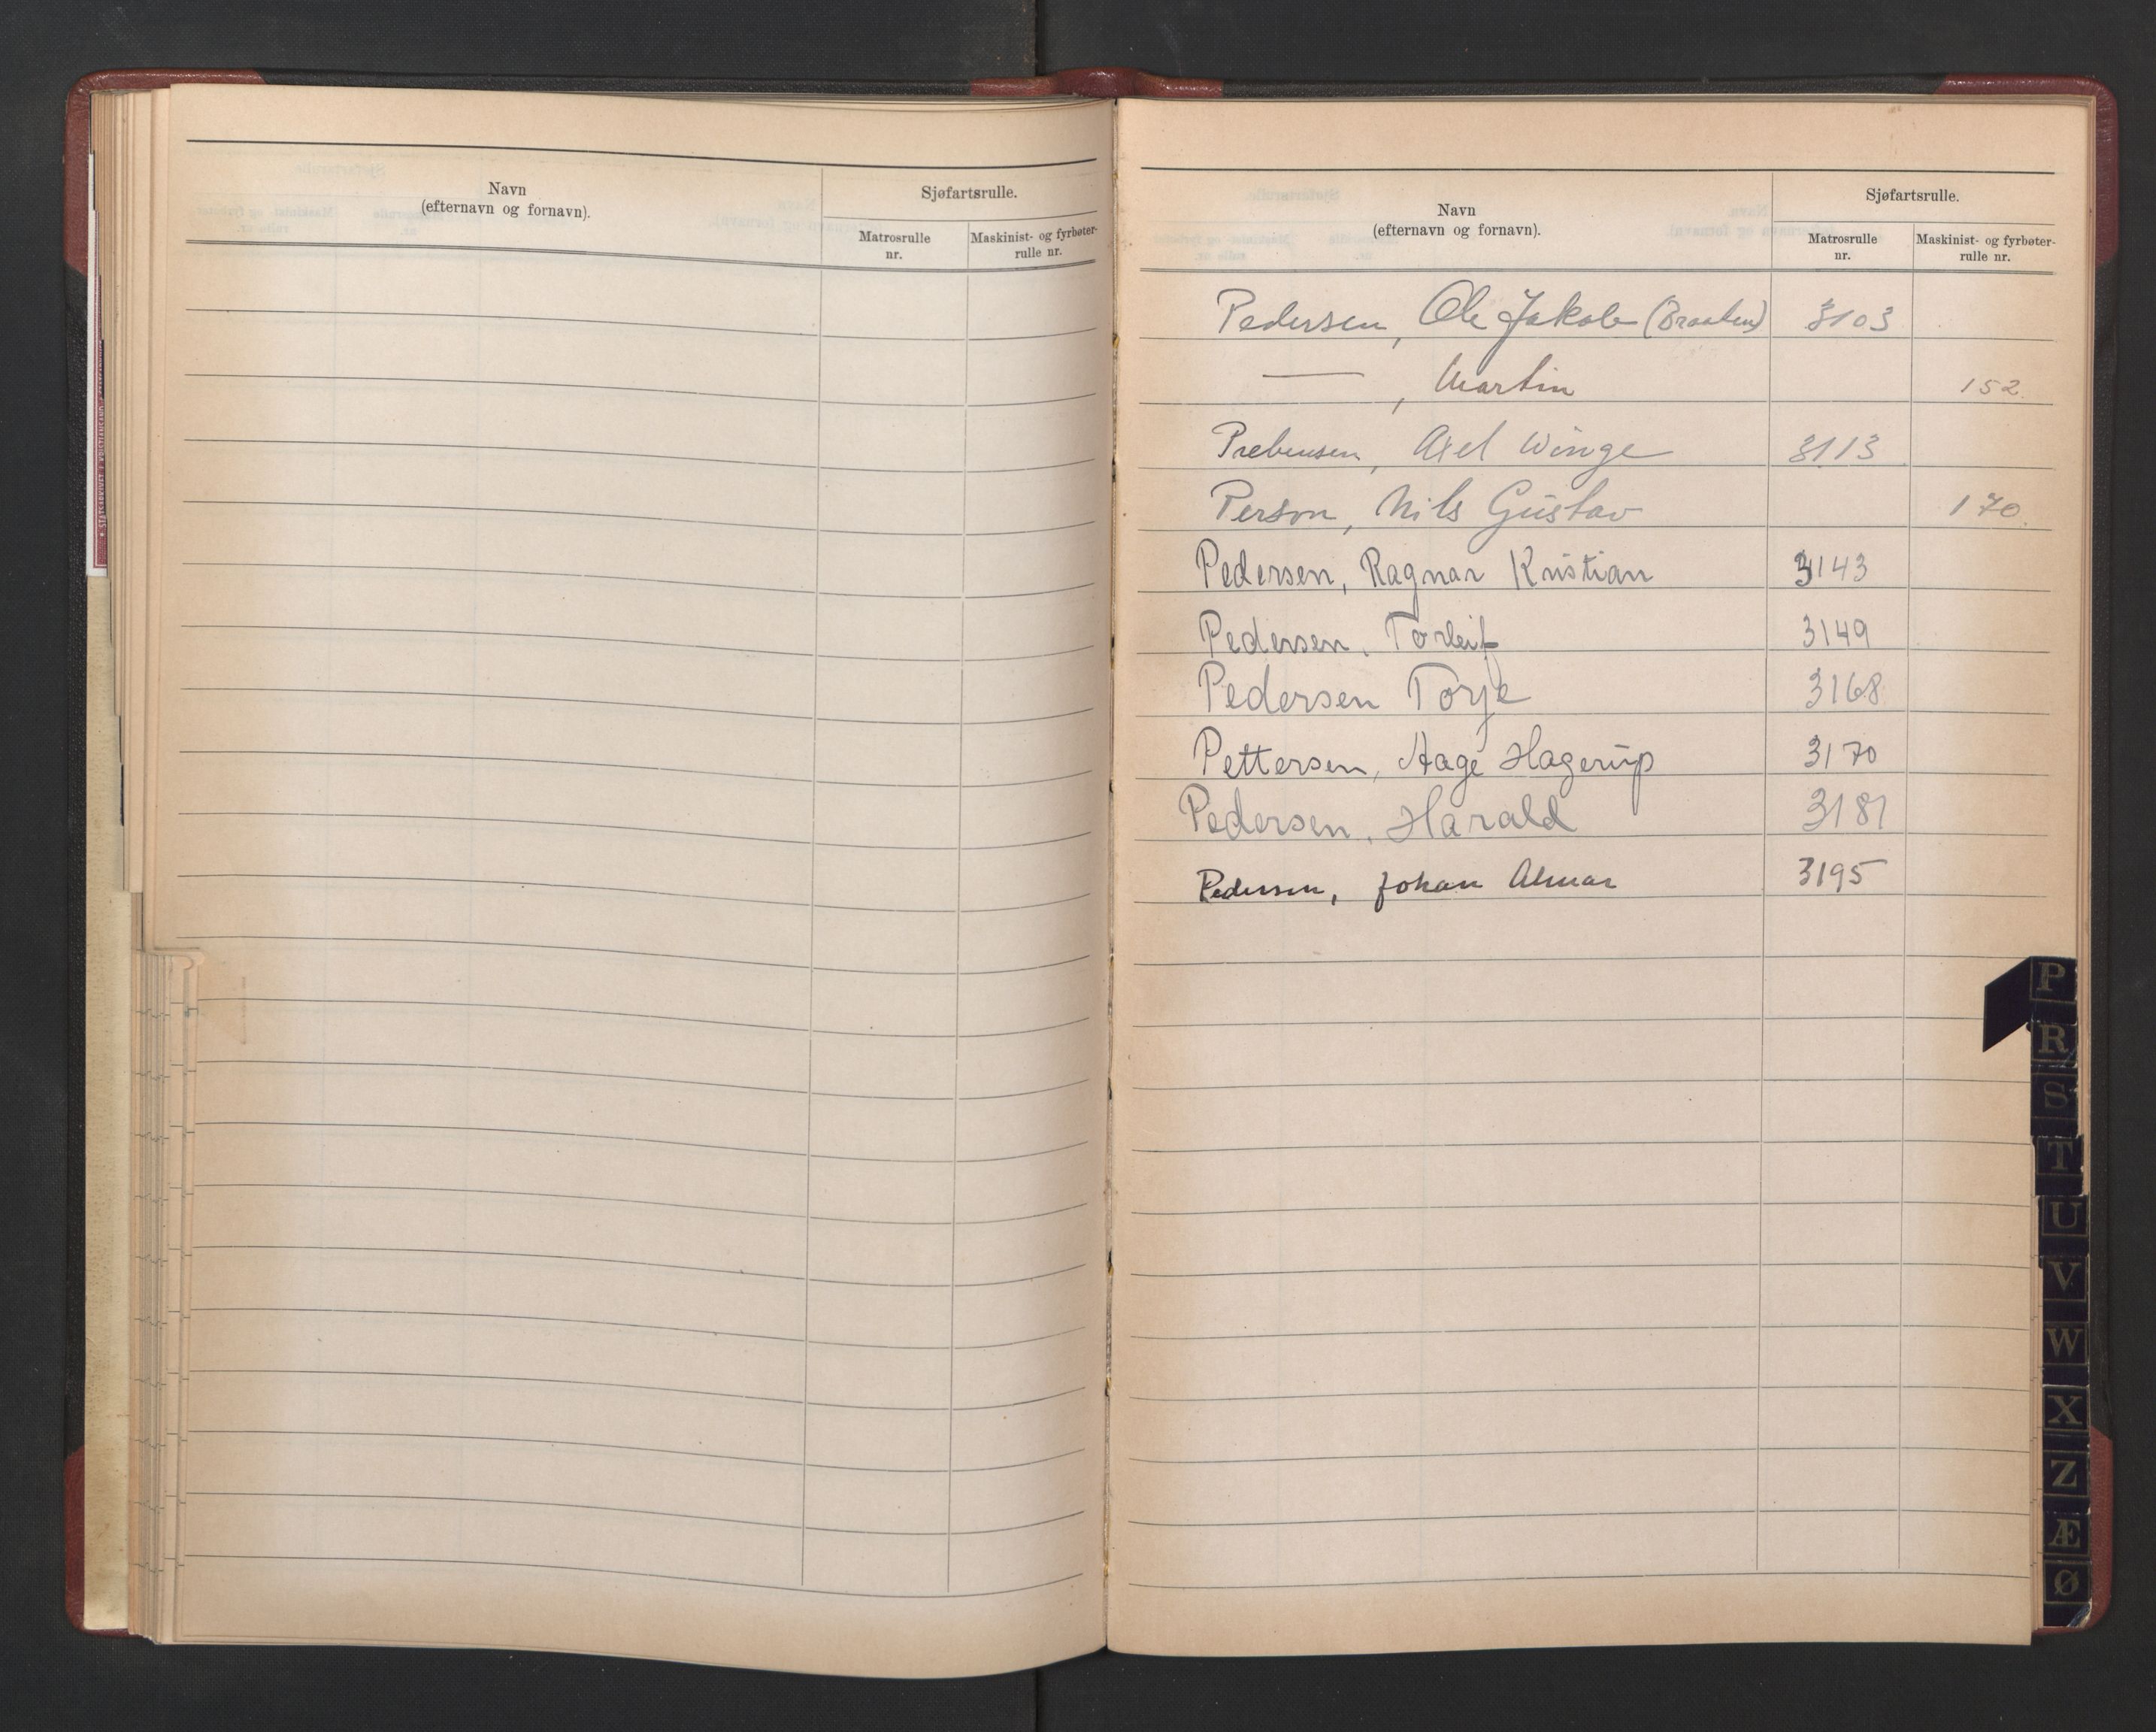 Navn
(efternavn og fornavn).
Sjøfartsrulle.
Matrosrulle
nr.
Maskinist- og fyrbøter-
rulle nr.
Navn
(efternavn og fornavn).
Sjøfartsrulle.
Matrosrulle
nr.
Maskinist- og fyrbøter-
rulle nr.
Pedersen, Ole Jakob (Braaten) 3103
— , Martin 152
Prebensen, Axel Winge 3113
Person, Nils Gustav 170.
Pedersen, Ragnar Kristian 3143
Pedersen, Torleif 3149
Pedersen Torje 3168
Pettersen, Aage Hagerup 3170
Pedersen, Harald 3181
Pedersen, Johan Almar 3195
P
R
S
T
U
V
W
X
Z
Æ
Ø